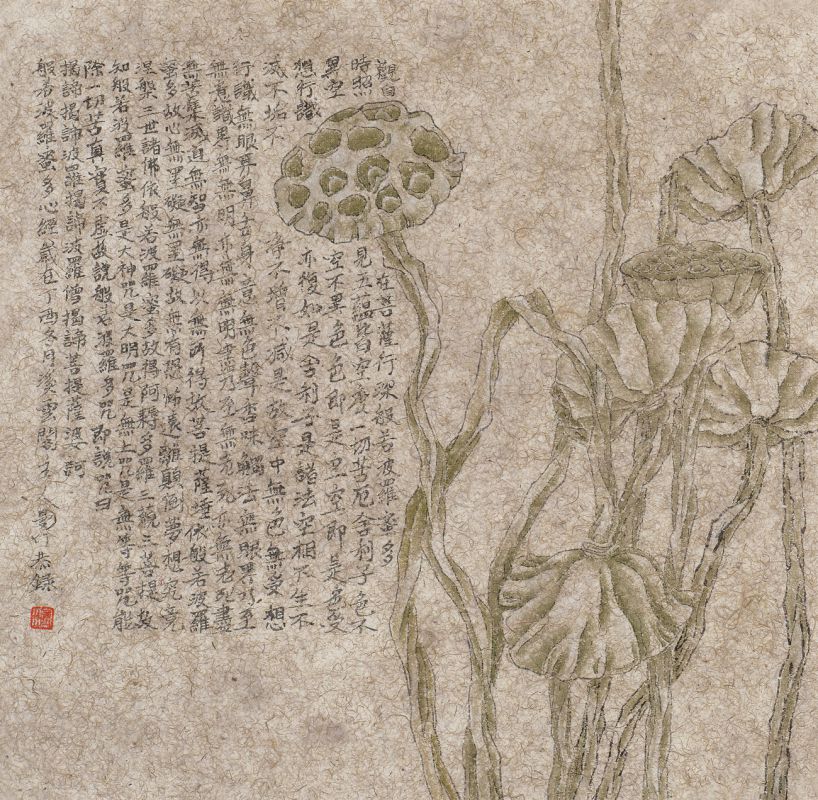 觀自在菩薩行深般若波羅蜜多
時照見五蘊皆空度一切苦厄舍利子色不
異空空不異色色即是空空即是色受
想行識亦復如是舍利子是諸法空相不生不
滅不垢不淨不增不減是故空中無色無受想
行識無眼耳鼻舌身意無色聲香味觸法無眼界乃至
無意識界無無明亦無無明盡乃至無老死亦無老死盡
無苦集滅道無智亦無得以無所得故菩提薩埵依般若波羅
蜜多故心無罣礙無罣礙故無有恐怖遠離顛倒夢想究竟
涅槃三世諸佛依般若波羅蜜多故得阿耨多羅三藐三菩提故
知般若波羅蜜多是大神咒是大明咒是無上咒是無等等咒能
除一切苦真實不虛故說般若波羅多咒即說咒曰
揭諦揭諦波羅揭諦波羅僧揭諦菩提薩婆訶
般若波羅蜜多心經歲在丁酉冬月雲閣主人恭錄